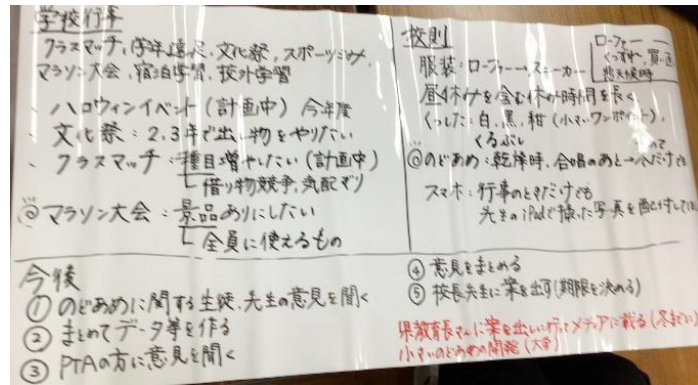 学校行事
クラスマッチ、学年遠足、文化祭、スポーツごみ、
マラソン大会、宿泊学習、校外学習
・ハロウィンイベント(計画中) 今年度
・文化祭:2,3年で出し物をやりたい
・クラスマッチ:種目増やしたい(計画中)
借り物競争、気配ぎり
◎マラソン大会:景品ありにしたい
全員に使えるもの
校則
ローファー
くつずれ、買い
悪天候時
服装:ローファー→スニーカー
昼休みを含む休み時間を長く
くつした:白、黒、紺(小さいワンポイント)、
くるぶし
◎のどあめ:乾燥時、合唱のあと→冬だけでも
スマホ:行事のときだけでも
先生のiPadで撮った写真を配付してほ
今後
① のどあめに関する生徒、先生の意見を聞く
② まとめてデータ等を作る
③ PTAの方に意見を聞く
④ 意見をまとめる
⑤ 校長先生に案を出す(期限を決める)
県教育長さんに案を出しに行ってメディアに載る(冬までに)
小さいのどあめの開発